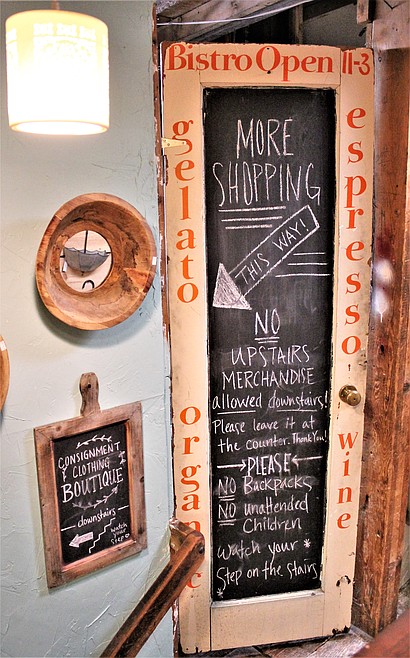 Bistro Open 11-3
gelato
organ c
espresso
wine
MORE
SHOPPING
THIS WAY!
NO
UPSTAIRS
MERCHANDISE
allowed downstairs!
Please leave it at
the counter. Thank You!
PLEASE
NO Backpacks
NO unattended
Children
Watch your
Step on the stairs
CONSIGNMENT
& CLOTHING
BOUTIQUE
downstairs
watch
your
step